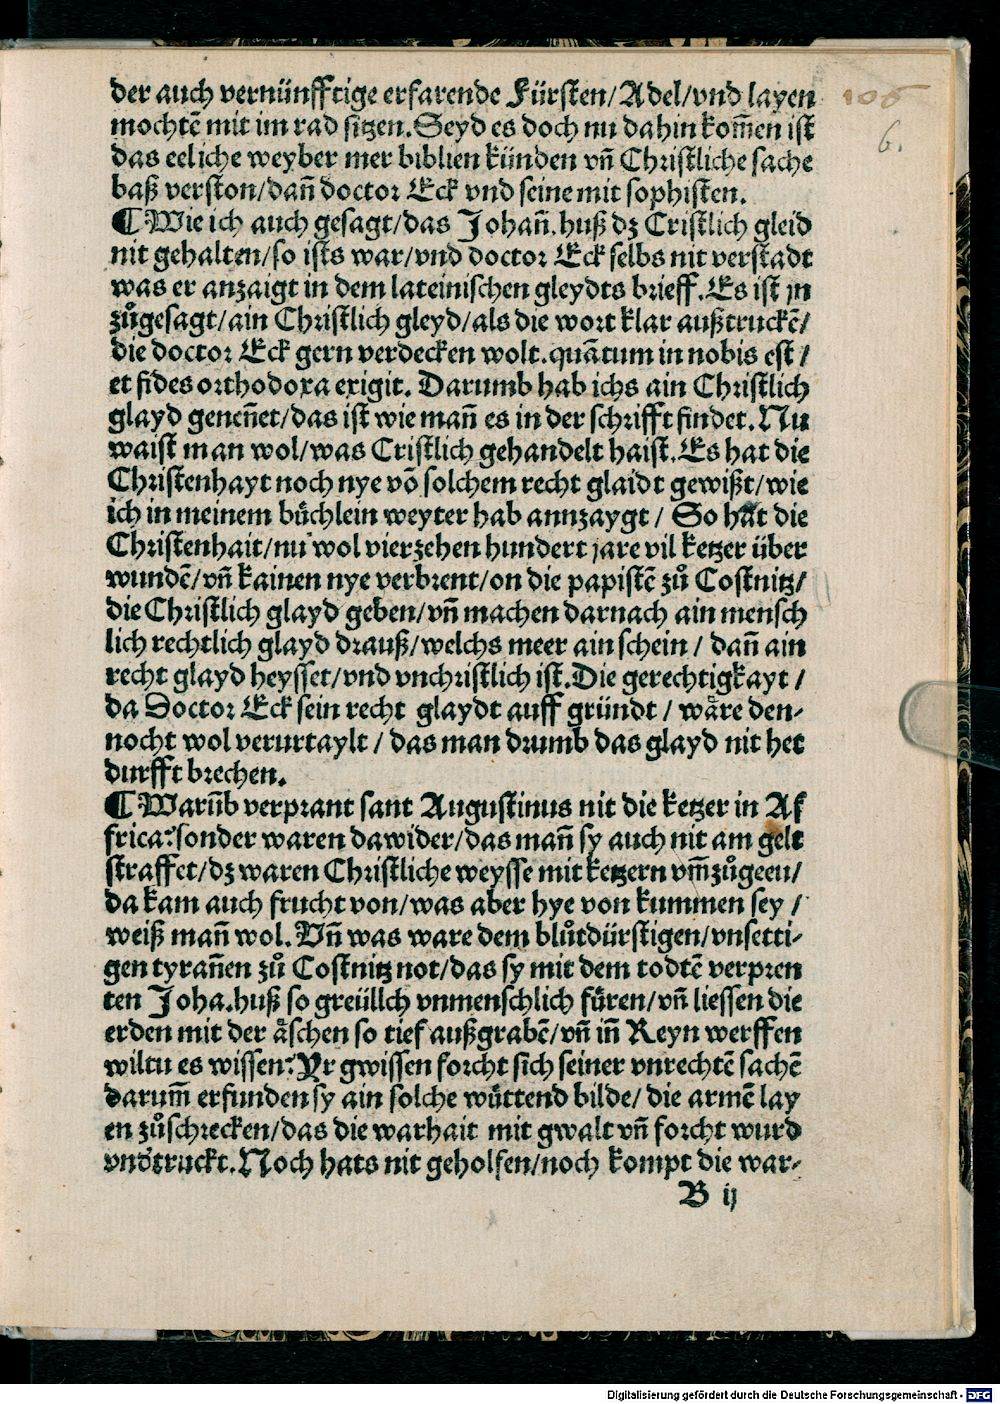 der auch vernünfftige erfarende Fürsten/Adel/vnd layen
mochtē mit im rad sitzen. Seyd es doch nu dahin kom̄en ist
das eeliche weyber mer biblien künden vn̄ Christliche sache
baß verston/dan̄ doctor Eck vnd seine mit sophisten.
¶ Wie ich auch gesagt/das Johan̄. huß dz Cristlich gleid
nit gehalten/so ists war/vnd doctor Eck selbs nit verstadt
was er anzaigt in dem lateinischen gleydts brieff. Es ist jn
zůgesagt/ain Christlich gleyd/als die wort klar außtruckē/
die doctor Eck gern verdecken wolt. quātum in nobis est /
et fides orthodoxa exigit. Darumb hab ichs ain Christlich
glayd genen̄et/das ist wie man̄ es in der schrifft findet. Nu
waist man wol/was Cristlich gehandelt haist. Es hat die
Christenhayt noch nye vō solchem recht glaidt gewißt/wie
ich in meinem bůchlein weyter hab annzaygt / So hat die
Christenhait/nu wol vierzehen hundert jare vil ketzer über
wundē/vn̄ kainen nye verbrent/on die papistē zů Costnitz/
die Christlich glayd geben/vn̄ machen darnach ain mensch
lich rechtlich glayd drauß/welchs meer ain schein / dan̄ ain
recht glayd heysset/vnd vnchristlich ist. Die gerechtigkayt /
da Doctor Eck sein recht glaydt auff gründt / wäre den-
nocht wol verurtaylt / das man drumb das glayd nit het
durfft brechen.
¶ Warum̄b verprant sant Augustinus nit die ketzer in Af
frica: sonder waren dawider/das man̄ sy auch nit am gelt
straffet/dz waren Christliche weysse mit ketzern vm̄zůgeen/
da kam auch frucht von/was aber hye von kummen sey /
weiß man̄ wol. Vn̄ was ware dem blůtdürstigen/vnsetti-
gen tyran̄en zů Costnitz not/das sy mit dem todtē verpren
ten Joha. huß so greüllch vnmenschlich füren/vn̄ liessen die
erden mit der äschen so tief außgrabē/vn̄ in̄ Reyn werffen
wiltu es wissen: Yr gwissen forcht sich seiner vnrechtē sachē
darum̄ erfunden sy ain solche wüttend bilde/ die armē lay
en zůschrecken/das die warhait mit gwalt vn̄ forcht wurd
vnd̄truckt. Noch hats nit geholfen/noch kompt die war-
B ij
106
6.
Digitalisierung gefördert durch die Deutsche Forschungsgemeinschaft - DFG